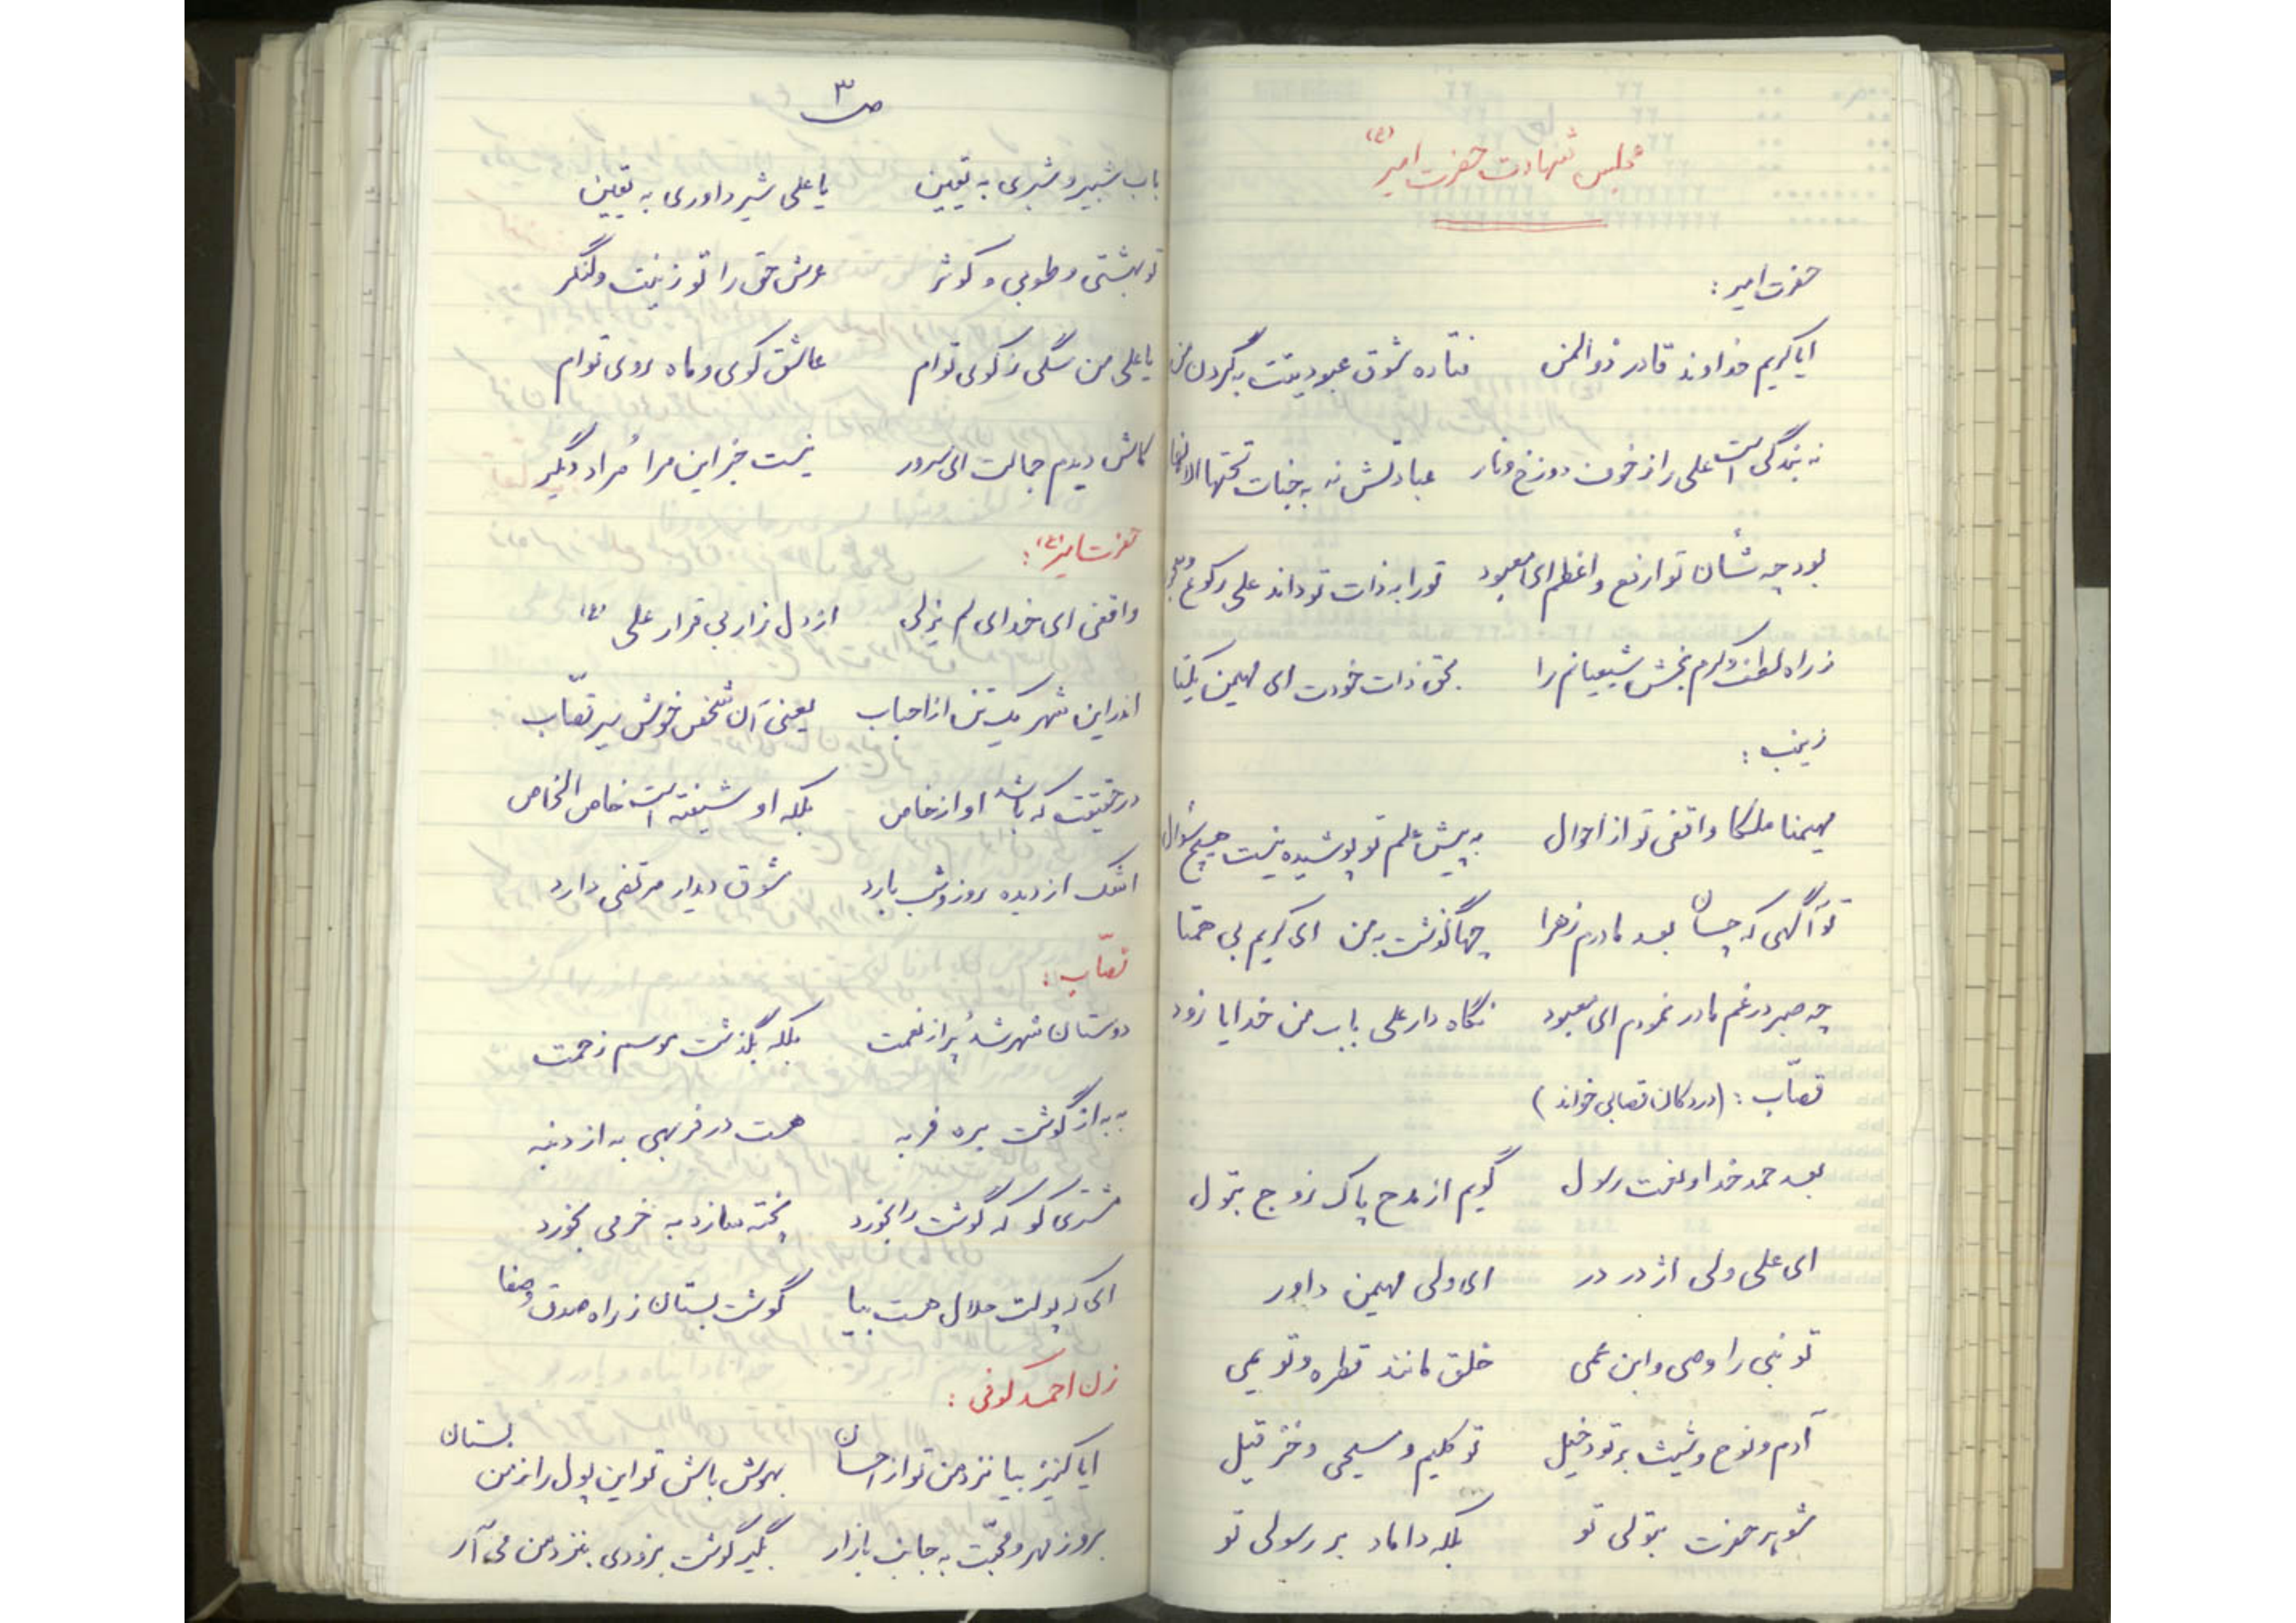 مجلس شهادت حضرت امیر (ع)
حضرت امیر :
ایا کریم خداوند قادر ذوالمن فتاده شوق عبودیتت به گردن من
نه بندگی است علی را ز خوف دوزخ و نار عبادتش نه به جنات تحتها الانهار
بود چه شأن تو ارفع و اعظم ای معبود تو را به ذات تو داند علی رکوع و سجود
ز راه لطف و کرم بخش شیعیانم را بحق ذات خودت ای مهیمن یکتا
زینب :
مهیمنا ملکا واقفی تو از احوال به پیش علم تو پوشیده نیست هیچ سؤال
تو آگهی که چسان بعد مادرم زهرا چها گذشت به من ای کریم بی همتا
چه صبر در غم مادر نمودم ای معبود نگاه دار علی باب من خدایا زود
قصّاب : (در دکان قصابی خواند)
بعد حمد خدا و نعت رسول گویم از مدح پاک زوج بتول
ای علی ولی اژدر در ای ولی مهیمن داور
تو نبی را وصی و ابن عمی خلق مانند قطره و تو یمی
آدم و نوح و شیث بر تو دخیل تو کلیم و مسیحی و
شوهر حضرت بتولی تو بلکه داماد بر رسولی تو
ص ۳
باب شبیر و شبری به یقین یا علی شیر داوری به یقین
تو بهشتی و طوبی و کوثر عرش حق را تو زینت و لنگر
یا علی من سگی ز کوی توام عاشق کوی و ماه روی توام
کاش دیدم جمالت ای سرور نیست جز این مرا مُراد دگر
حضرت امیر (ع) :
واقفی ای خدای لم یزلی از دل زار بی قرار علی (ع)
اندر این شهر یک تن از احباب یعنی آن شخص خوش سیر قصّاب
در حقیقت که باشد او از خاص بلکه او شیفته است خاص الخاص
اشک از دیده روز و شب بارد شوق دیدار مرتضی دارد
قصّاب :
دوستان شهر شد پُر از نعمت بلکه بگذشت موسم زحمت
به به از گوشت بره فربه هست در فربهی به از دنبه
مشتری کو که گوشت را بخرد پخته سازد به خرمی بخورد
ای که پولت حلال هست بیا گوشت بستان ز راه صدق و صفا
زن احمد کوفی :
ایا کنیز بیا نزد من تو از احسان بهوش باش تو این پول را ز من بستان
برو ز مهر و محبّت به جانب بازار بگیر گوشت بزودی بنزد من می آر